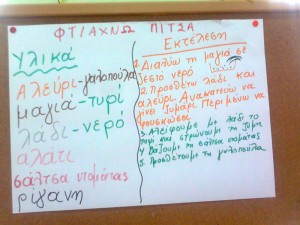 ΦΤΙΑΧΝΩ ΠΙΤΣΑ
Υλικά
Αλεύρι-γαλοπούλα
μαγιά-τυρί
λάδι-νερό
αλάτι
σάλτσα ντομάτας
ρίγανη
Εκτέλεση
1. Διαλύω τη μαγιά σε
ζεστό νερό
2. Προσθέτω λάδι και
αλεύρι. Ανακατεύω να
γίνει ζυμάρι. Περιμένω να
φουσκώσει
3. Αλείφουμε με λάδι το
ταψί και στρώνουμε τη ζύμη
4. Βάζουμε τη σάλτσα ντομάτας
5. Προσθέτουμε τη γαλοπούλα